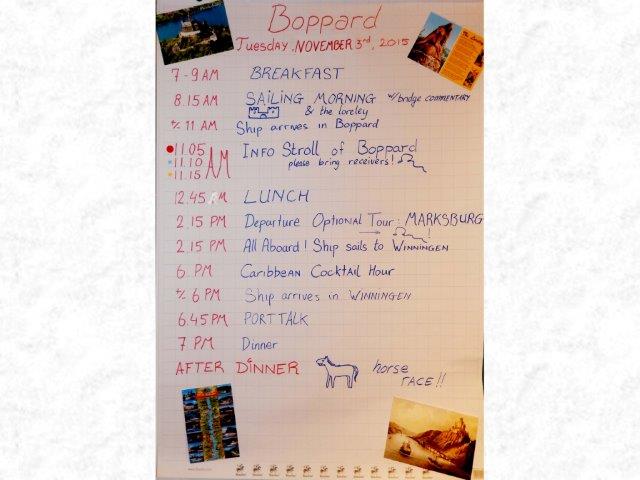 Boppard
Tuesday, NOVEMBER 3rd, 2015
7-9 AM BREAKFAST
8.15 AM SAILING MORNING w/ bridge commentary
& the loreley
+/- 11 AM Ship arrives in Boppard
11.05
11.10
11.15
AM
INFO Stroll of Boppard
please bring receivers!
12.45 PM LUNCH
2.15 PM Departure Optional Tour: MARKSBURG
!
2.15 PM All Aboard! Ship sails to WINNINGEN
6 PM Caribbean Cocktail Hour
+/- 6 PM Ship arrives in WINNINGEN
6.45 PM PORTTALK
7 PM Dinner
AFTER DINNER horse
RACE!!